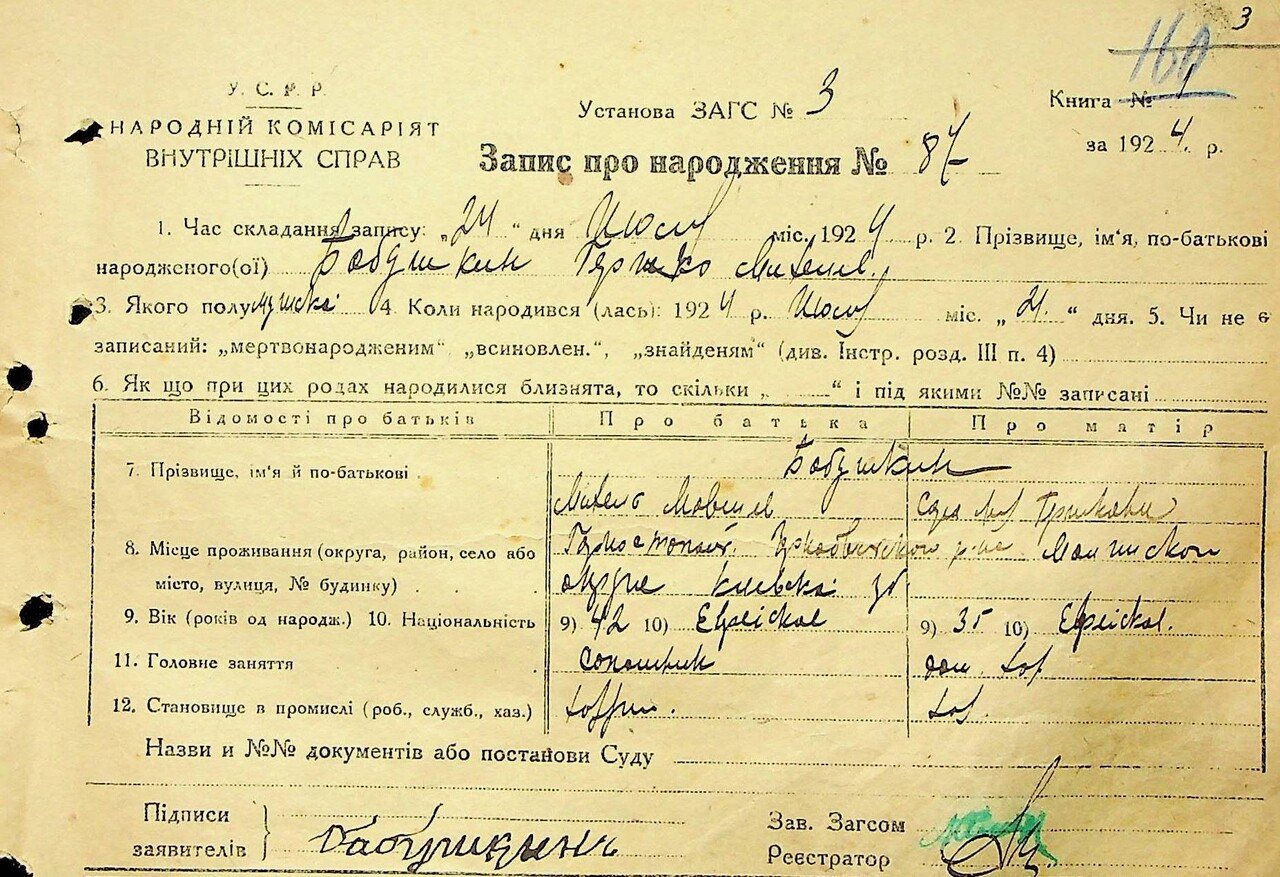 3
160
У. С. Р. Р.
Установа ЗАГС № 3
Книга № 1
НАРОДНІЙ КОМІСАРІЯТ
ВНУТРІШНІХ СПРАВ
Запис про народження № 87
за 1924 р.
1. Час складання запису: „24 “ дня Июля міс. 1924 р. 2. Прізвище, ім'я, по-батькові
народженого(ої) Бабушкин Гершко Михел.
3. Якого полу мужска 4. Коли народився (лась): 1924 р. Июля міс. „21. “ дня. 5. Чи не є
записаний: „мертвонародженим“ „всиновлен.“, „знайденям“ (див. Інстр. розд. III п. 4)
6. Як що при цих родах народилися близнята, то скільки „ “ і під якими №№ записані
Відомості про батьків Про батька Про матір
7. Прізвище, ім'я й по-батькові Бабушкин
Михель Мовшев
8. Місце проживання (округа, район, село або
місто, вулиця, № будинку) округе Киевска
9. Вік (років од народж.) 10. Національність 9) 42 10) Еврейская 9) 35 10) Еврейская.
11. Головне заняття дом. хоз
12. Становище в промислі (роб., служб., хаз.) хоз.
Назви и №№ документів або постанови Суду
Підписи
заявителів Бабушкинъ
Зав. Загсом
Реєстратор